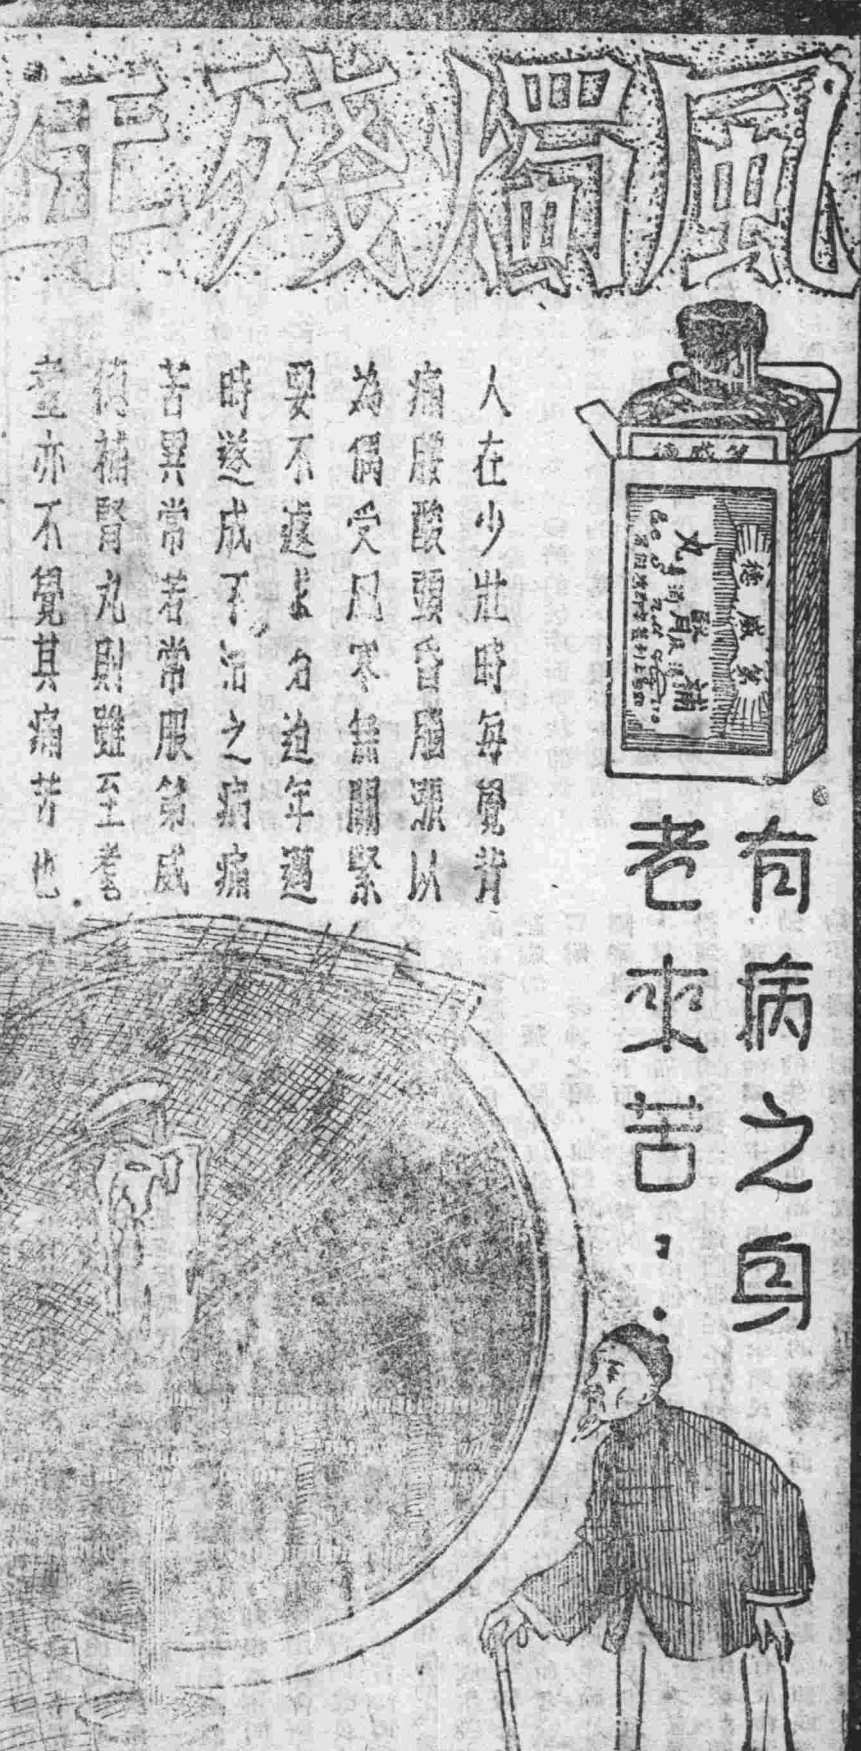 風燭殘年
第威德
補腎丸
有病之身
老來苦：
人在少壯時每覺背
痛腰酸頭昏腦漲以
為偶受風寒無關緊
要不速求治迨年邁
時遂成不治之病痛
苦異常若常服第威
德補腎丸則雖至耄
耋亦不覺其痛苦也